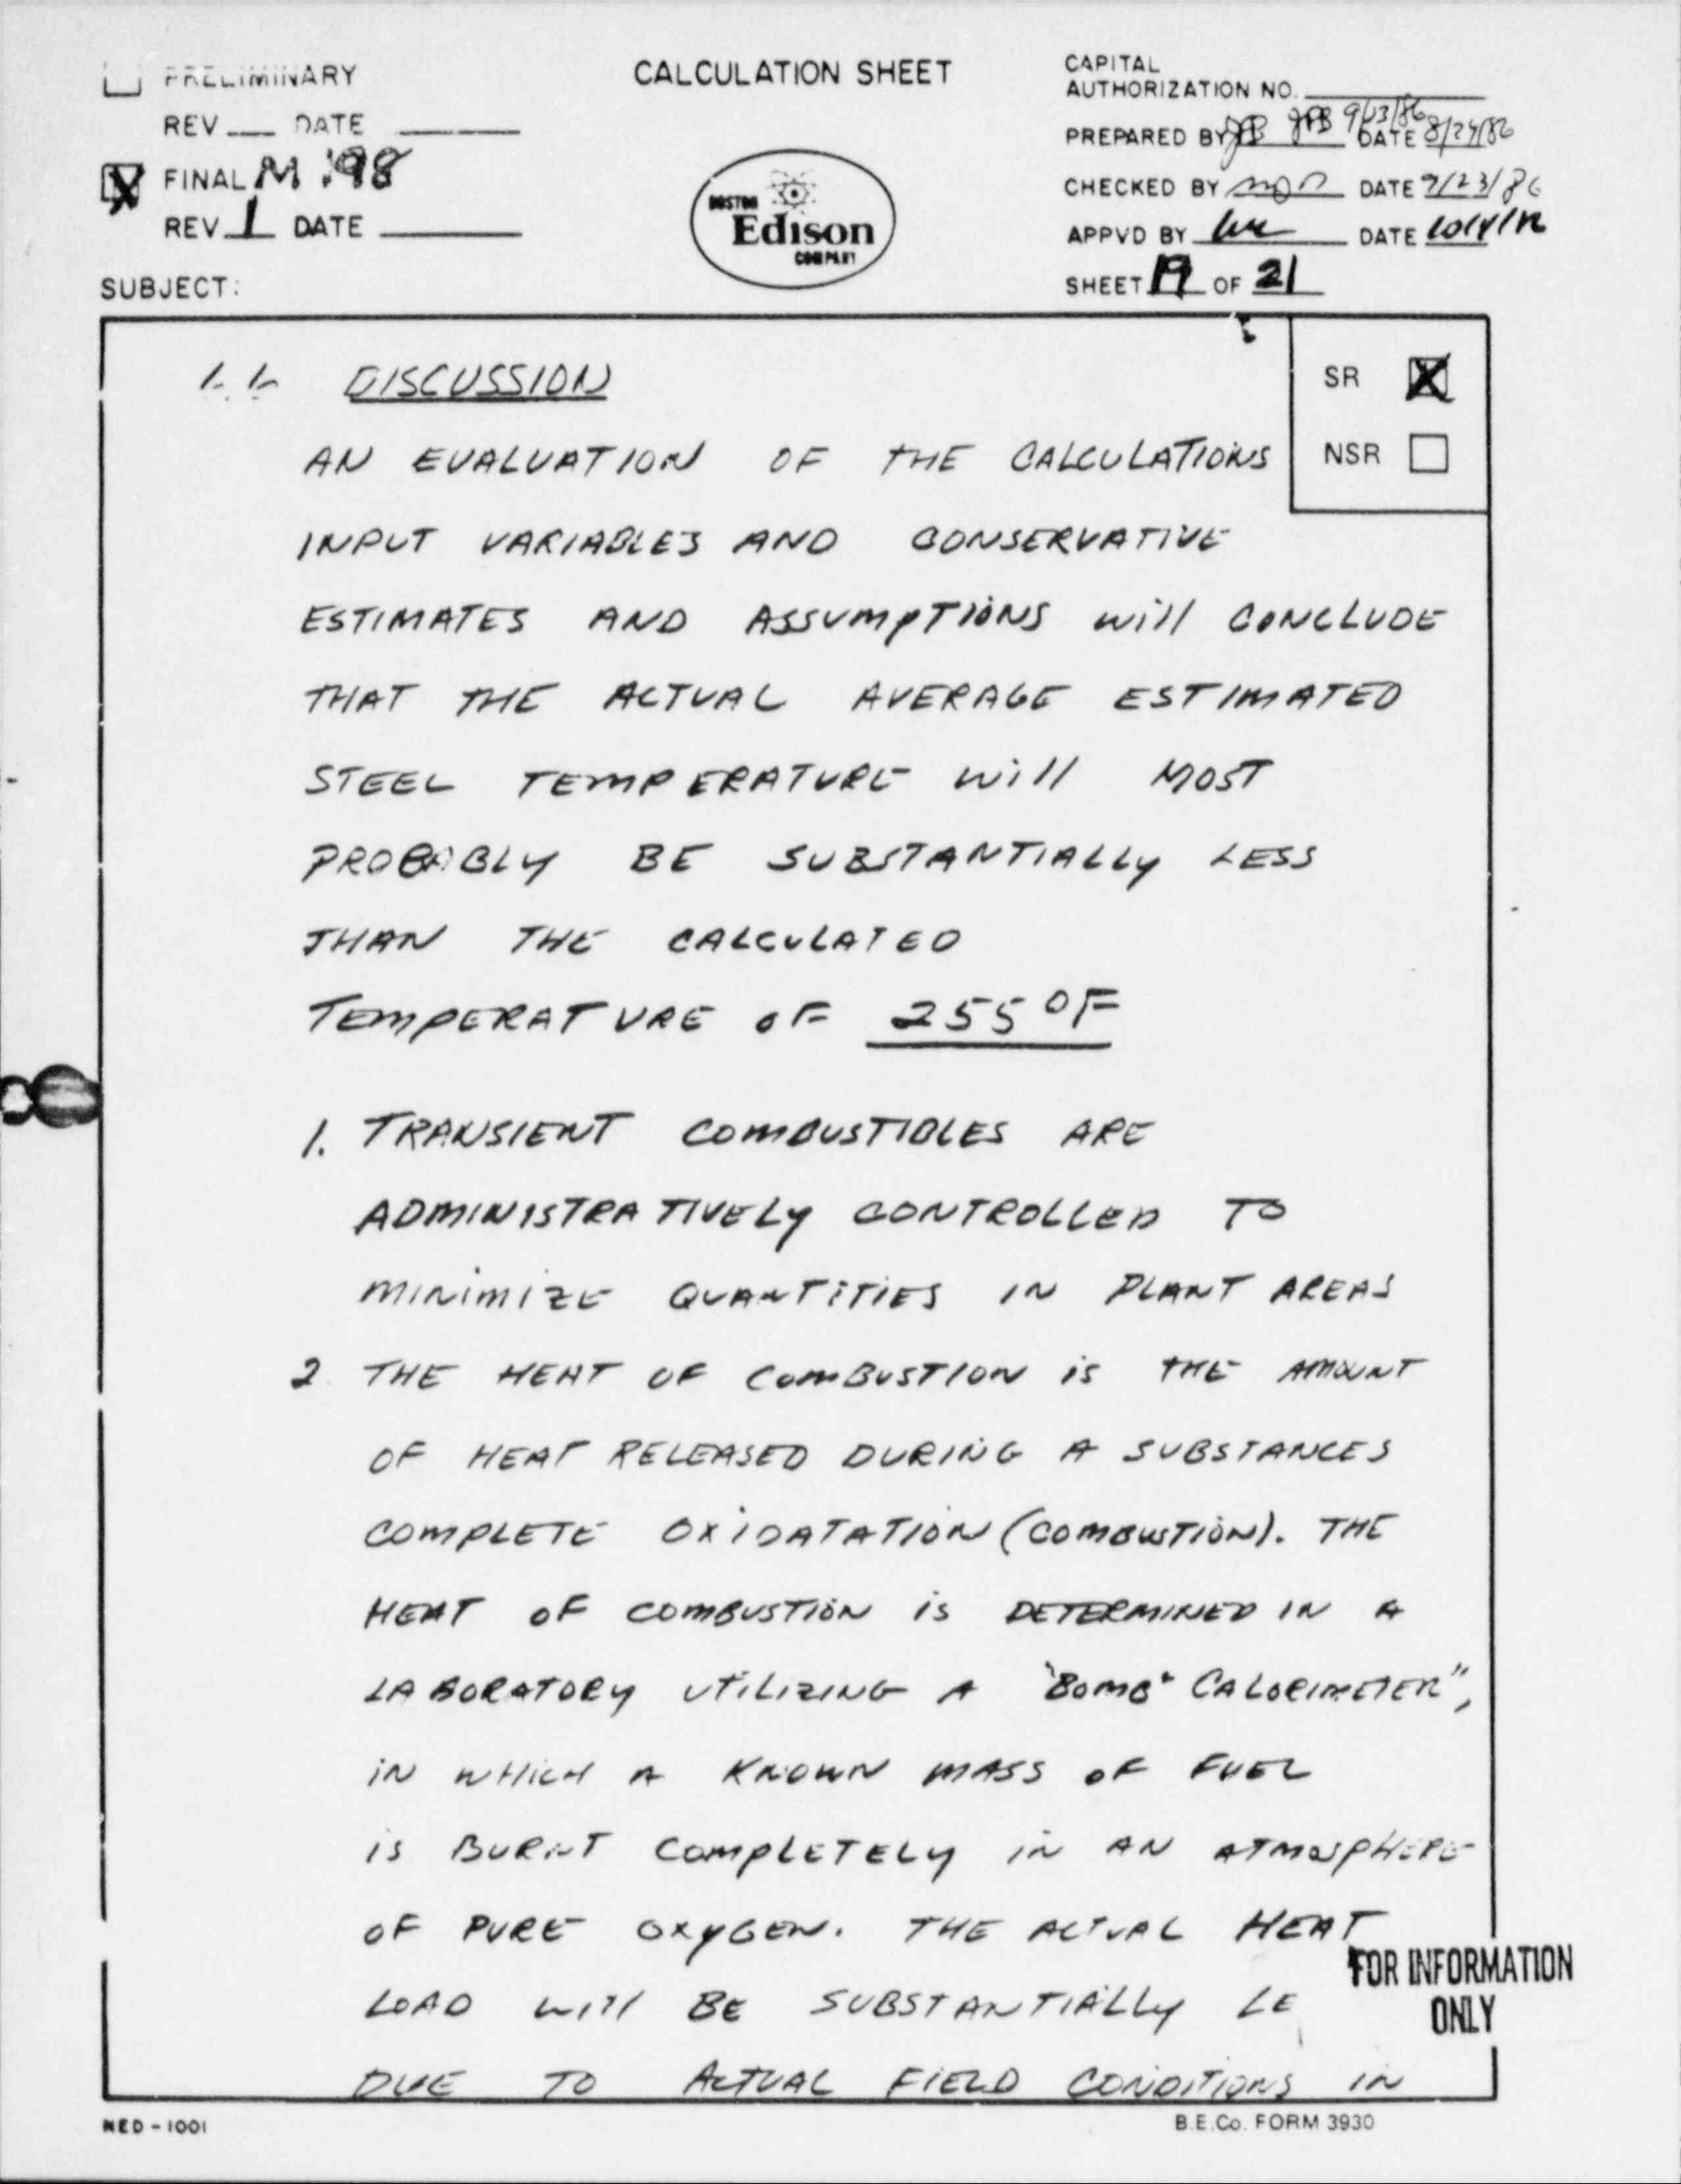 PRELIMINARY
CALCULATION SHEET
CAPITAL
AUTHORIZATION NO.
REV DATE
PREPARED BY JPB JPB 9/23/86 DATE 8/24/86
FINAL M 98
CHECKED BY DATE 9/23/86
REV 1 DATE
BOSTON
Edison
COMPANY
APPVD BY DATE
SUBJECT:
SHEET 19 OF 21
DISCUSSION
SR X
AN EVALUATION OF THE CALCULATIONS
NSR
INPUT VARIABLES AND CONSERVATIVE
ESTIMATES AND ASSUMPTIONS will CONCLUDE
THAT THE ACTUAL AVERAGE ESTIMATED
STEEL TEMPERATURE will MOST
PROBABLY BE SUBSTANTIALLY LESS
THAN THE CALCULATED
TEMPERATURE OF 255 °F
1. TRANSIENT COMBUSTIBLES ARE
ADMINISTRATIVELY CONTROLLED TO
MINIMIZE QUANTITIES IN PLANT AREAS
2 THE HEAT OF COMBUSTION is THE AMOUNT
OF HEAT RELEASED DURING A SUBSTANCES
COMPLETE OXIDATATION (COMBUSTION). THE
HEAT OF COMBUSTION is DETERMINED IN A
LABORATORY UTILIZING A "BOMB CALORIMETER",
IN WHICH A KNOWN MASS OF FUEL
is BURNT COMPLETELY IN AN ATMOSPHERE
OF PURE OXYGEN. THE ACTUAL HEAT
LOAD will BE SUBSTANTIALLY LE
FOR INFORMATION
ONLY
DUE TO ACTUAL FIELD CONDITIONS IN
NED-1001
B.E.Co. FORM 3930